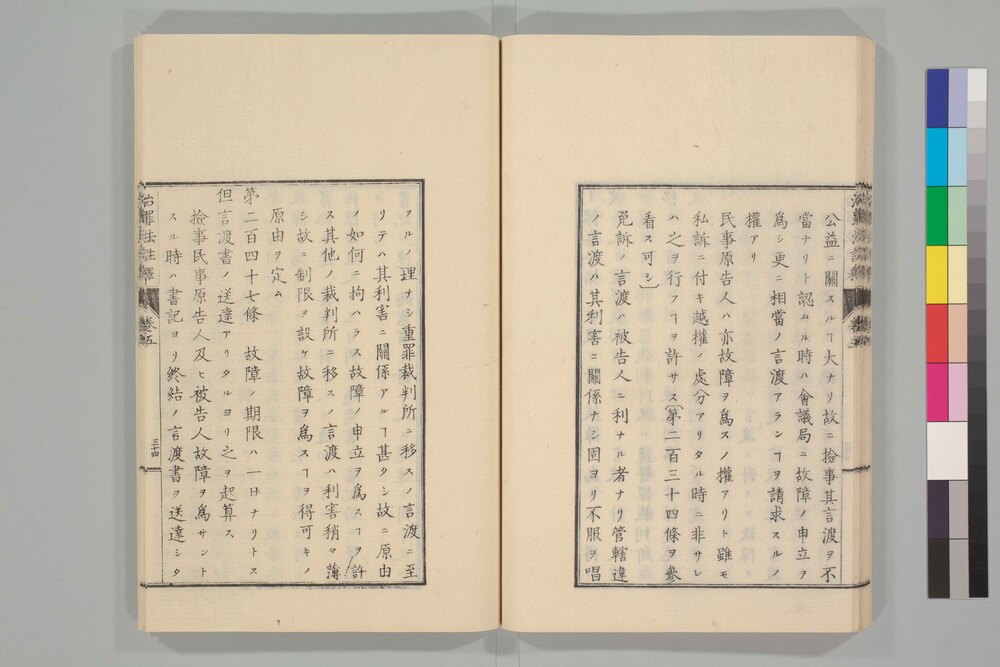 公益ニ關スルヿ大ナリ故ニ撿事其言渡ヲ不
當ナリト認ムル時ハ會議局ニ故障ノ申立ヲ
爲シ更ニ相當ノ言渡アランヿヲ請求スルノ
權アリ
民事原告人ハ亦故障ヲ爲スノ權アリト雖モ
私訴ニ付キ越權ノ處分アリタル時ニ非サレ
ハ之ヲ行フヿヲ許サス第二百三十四條ヲ參
看ス可シ」
免訴ノ言渡ハ被告人ニ利ナル者ナリ管轄違
ノ言渡ハ其利害ニ關係ナシ固ヨリ不服ヲ唱
フルノ理ナシ重罪裁判所ニ移スノ言渡ニ至
リテハ其利害ニ關係アルヿ甚タシ故ニ原由
ノ如何ニ拘ハラス故障ノ申立ヲ爲スヿヲ許
ス其他ノ裁判所ニ移スノ言渡ハ利害稍々薄
シ故ニ制限ヲ設ケ故障ヲ爲スヿヲ得可キノ
原由ヲ定ム
第二百四十七條　故障ノ期限ハ一日ナリトス
但言渡書ノ送達アリタルヨリ之ヲ起算ス
撿事民事原告人及ヒ被告人故障ヲ爲サント
スル時ハ書記ヨリ終結ノ言渡書ヲ送達シタ
治罪法註釋
卷五
三十四